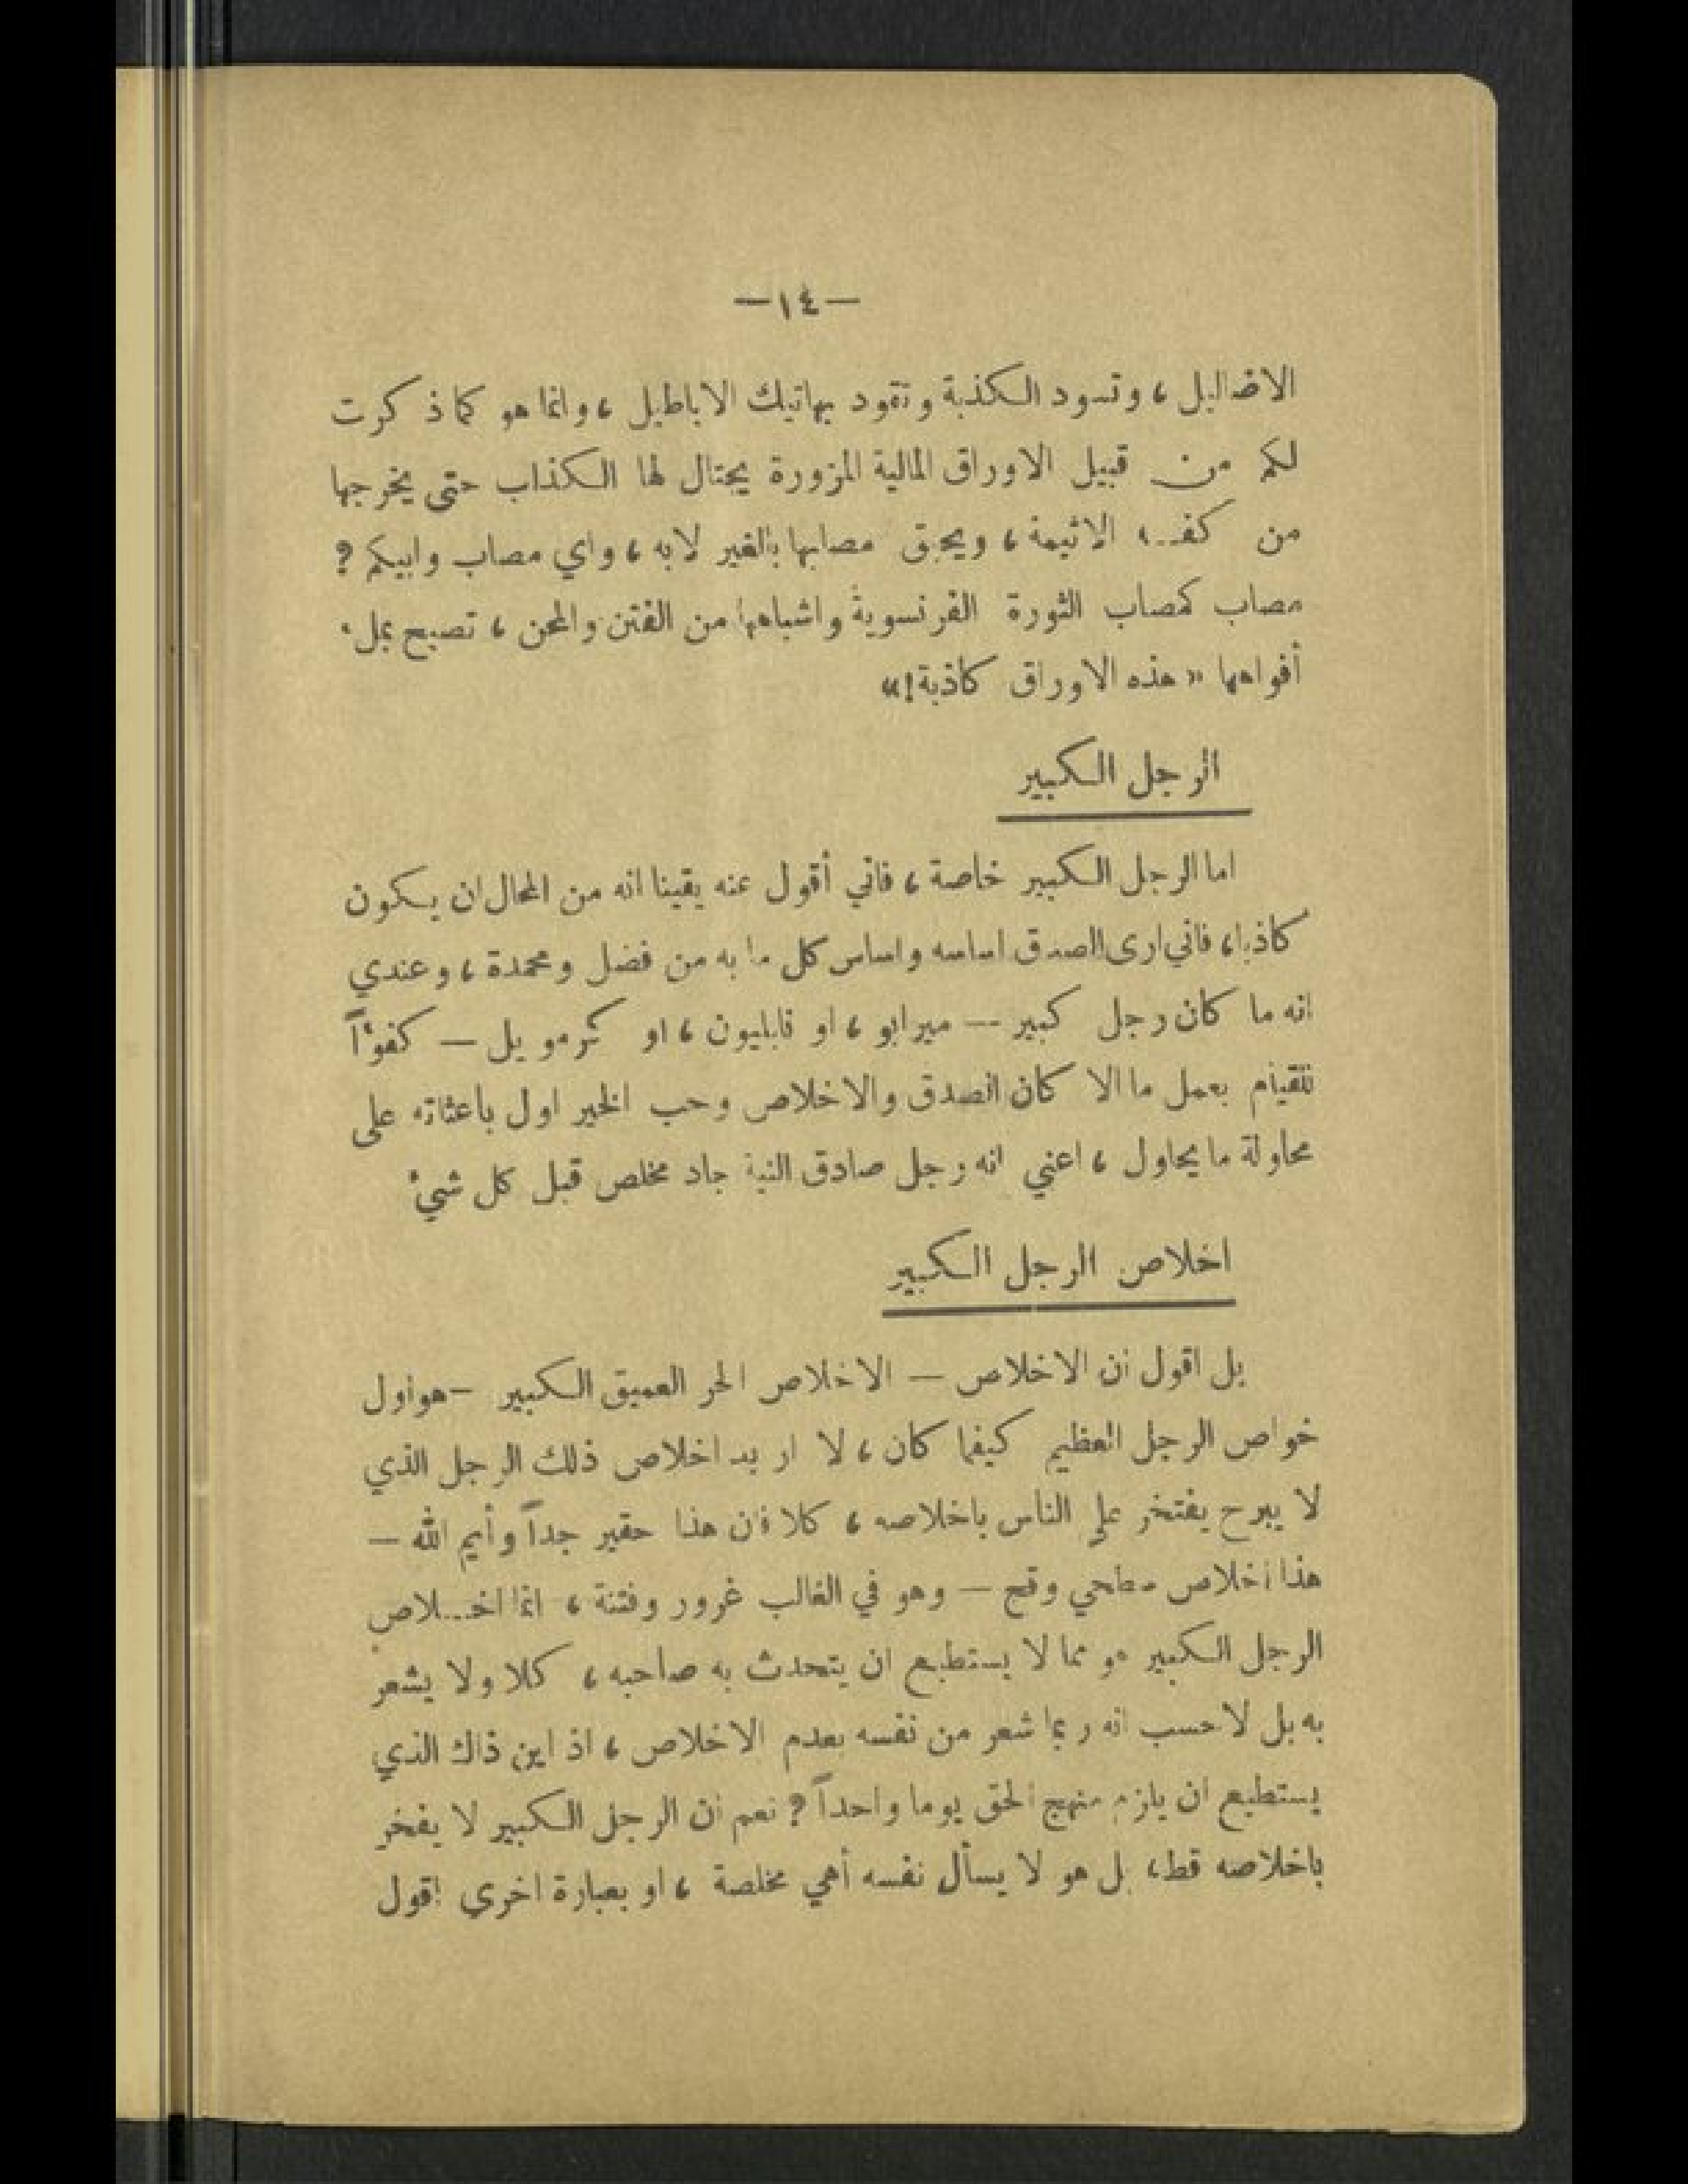 —١٤—
الاضاليل ، وتسود الكذبة وتقود بهاتيك الاباطيل ، وانما هو كما ذكرت
لكم من قبيل الاوراق المالية المزورة يحتال لها الكذاب حتى يخرجها
من كفه الاثيمة ، ويحيق مصابها بالغير لابه ، واي مصاب وابيكم ?
مصاب كمصاب الثورة الفرنسوية واشباهها من الفتن والمحن ، تصيح بملء
أفواهها « هذه الاوراق كاذبة ! »
الرجل الكبير
اما الرجل الكبير خاصة ، فاني أقول عنه يقينا انه من المحال ان يكون
كاذبا ، فاني ارى الصدق اساسه واساس كل ما به من فضل ومحمدة ، وعندي
انه ما كان رجل كبير — ميرابو ، او نابليون ، او كرمويل — كفؤاً
للقيام بعمل ما الا كان الصدق والاخلاص وحب الخير اول باعثاته على
محاولة ما يحاول ، اعني انه رجل صادق النية جاد مخلص قبل كل شيء
اخلاص الرجل الكبير
بل اقول ان الاخلاص — الاخلاص الحر العميق الكبير — هو اول
خواص الرجل العظيم كيفما كان ، لا اريد اخلاص ذلك الرجل الذي
لا يبرح يفتخر على الناس باخلاصه ، كلا فان هذا حقير جداً وأيم الله —
هذا اخلاص سطحي وقح — وهو في الغالب غرور وفتنة ، انما اخـلاص
الرجل الكبير هو مما لا يستطيع ان يتحدث به صاحبه ، كلا ولا يشعر
به بل لاحسب انه ربما شعر من نفسه بعدم الاخلاص ، اذ اين ذاك الذي
يستطيع ان يلزم منهج الحق يوما واحداً ? نعم ان الرجل الكبير لا يفخر
باخلاصه قط ، بل هو لا يسأل نفسه أهي مخلصة ، او بعبارة اخرى اقول